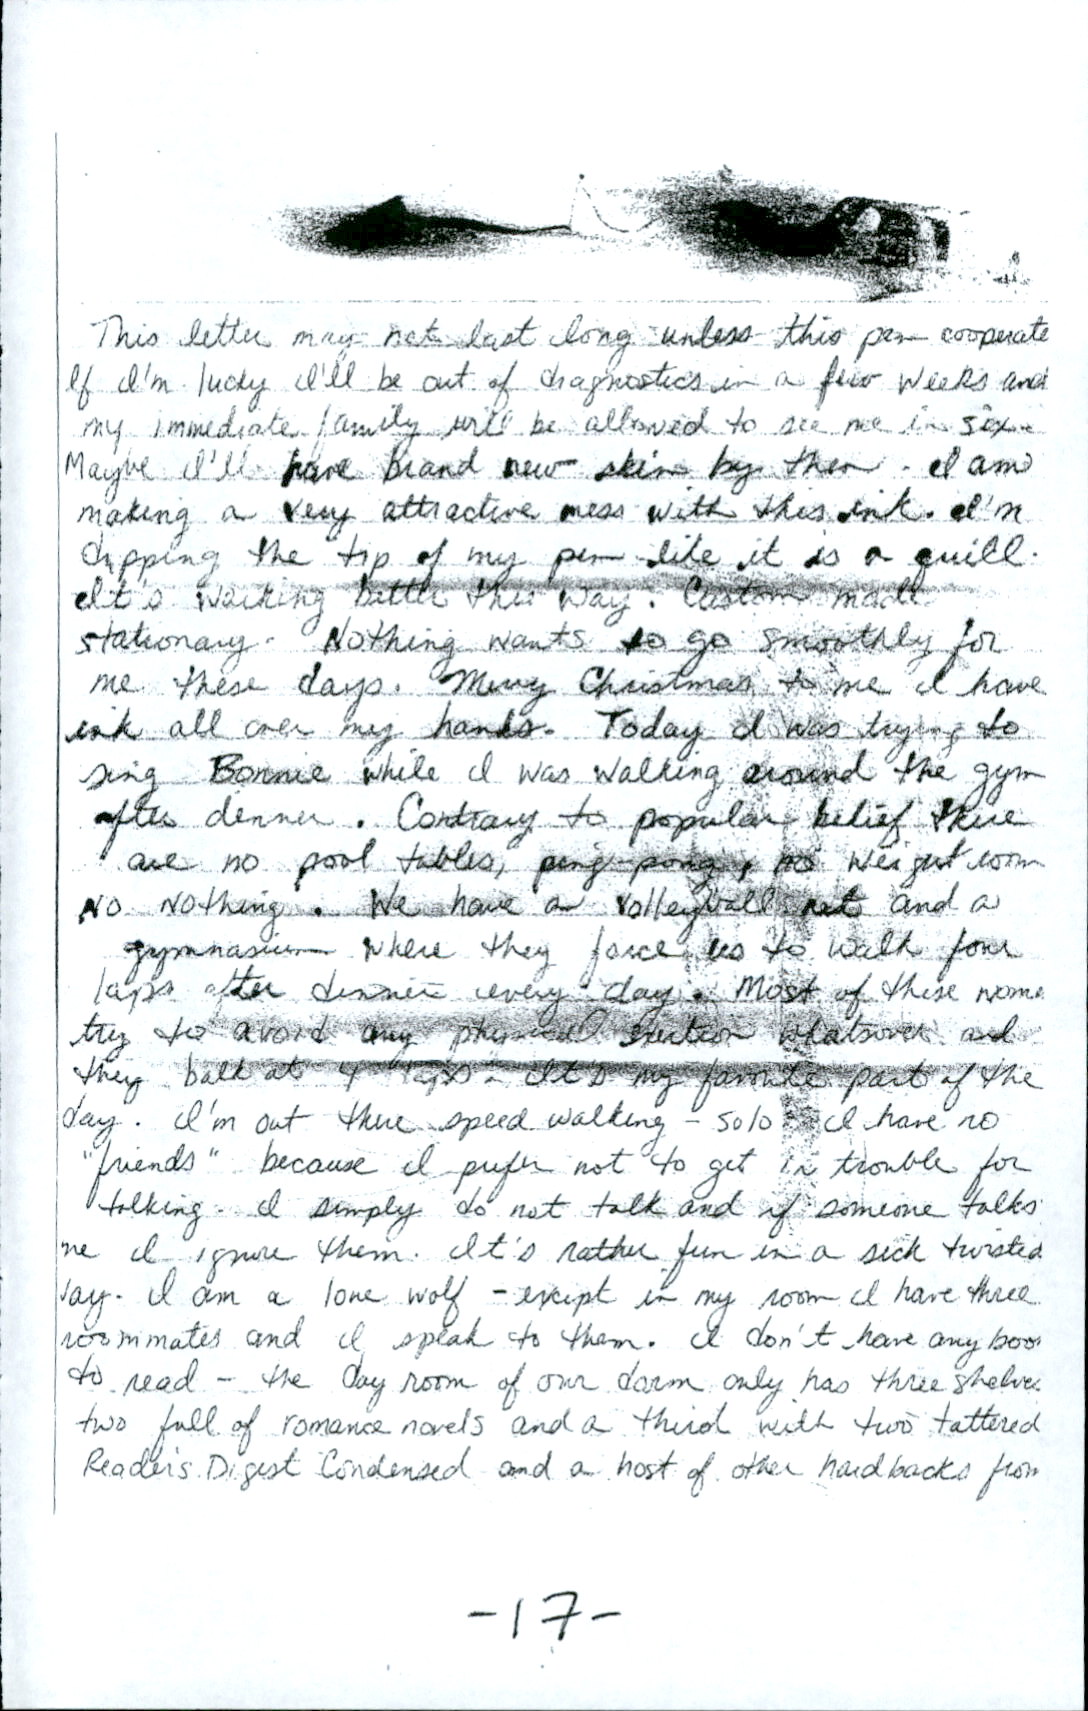 This letter may not last long unless this pen cooperate
If I'm lucky I'll be out of diagnostics in a few weeks and
my immediate family will be allowed to see me in six.
Maybe I'll have brand new skin by then. I am
making a very attractive mess with this ink. I'm
dipping the tip of my pen like it is a quill.
It's working better this way. Custom made
stationary. Nothing wants to go smoothly for
me these days. Merry Christmas to me I have
ink all over my hands. Today I was trying to
sing Bonnie while I was walking around the gym
after dinner. Contrary to popular belief there
are no pool tables, ping-pong, no weight room
No Nothing. We have a volleyball net and a
gymnasium where they force us to walk four
laps after dinner every day. Most of these wome
try to avoid any physical exertion whatsover and
they balk at 4 laps. It's my favorite part of the
day. I'm out there speed walking - solo I have no
"friends" because I prefer not to get in trouble for
talking. I simply do not talk and if someone talks
me I ignore them. It's rather fun in a sick twisted
way. I am a lone wolf - except in my room I have three
roommates and I speak to them. I don't have any boo
to read - the day room of our dorm only has three shelves
two full of romance novels and a third with two tattered
Reader's Digest Condensed and a host of other hardbacks from
-17-